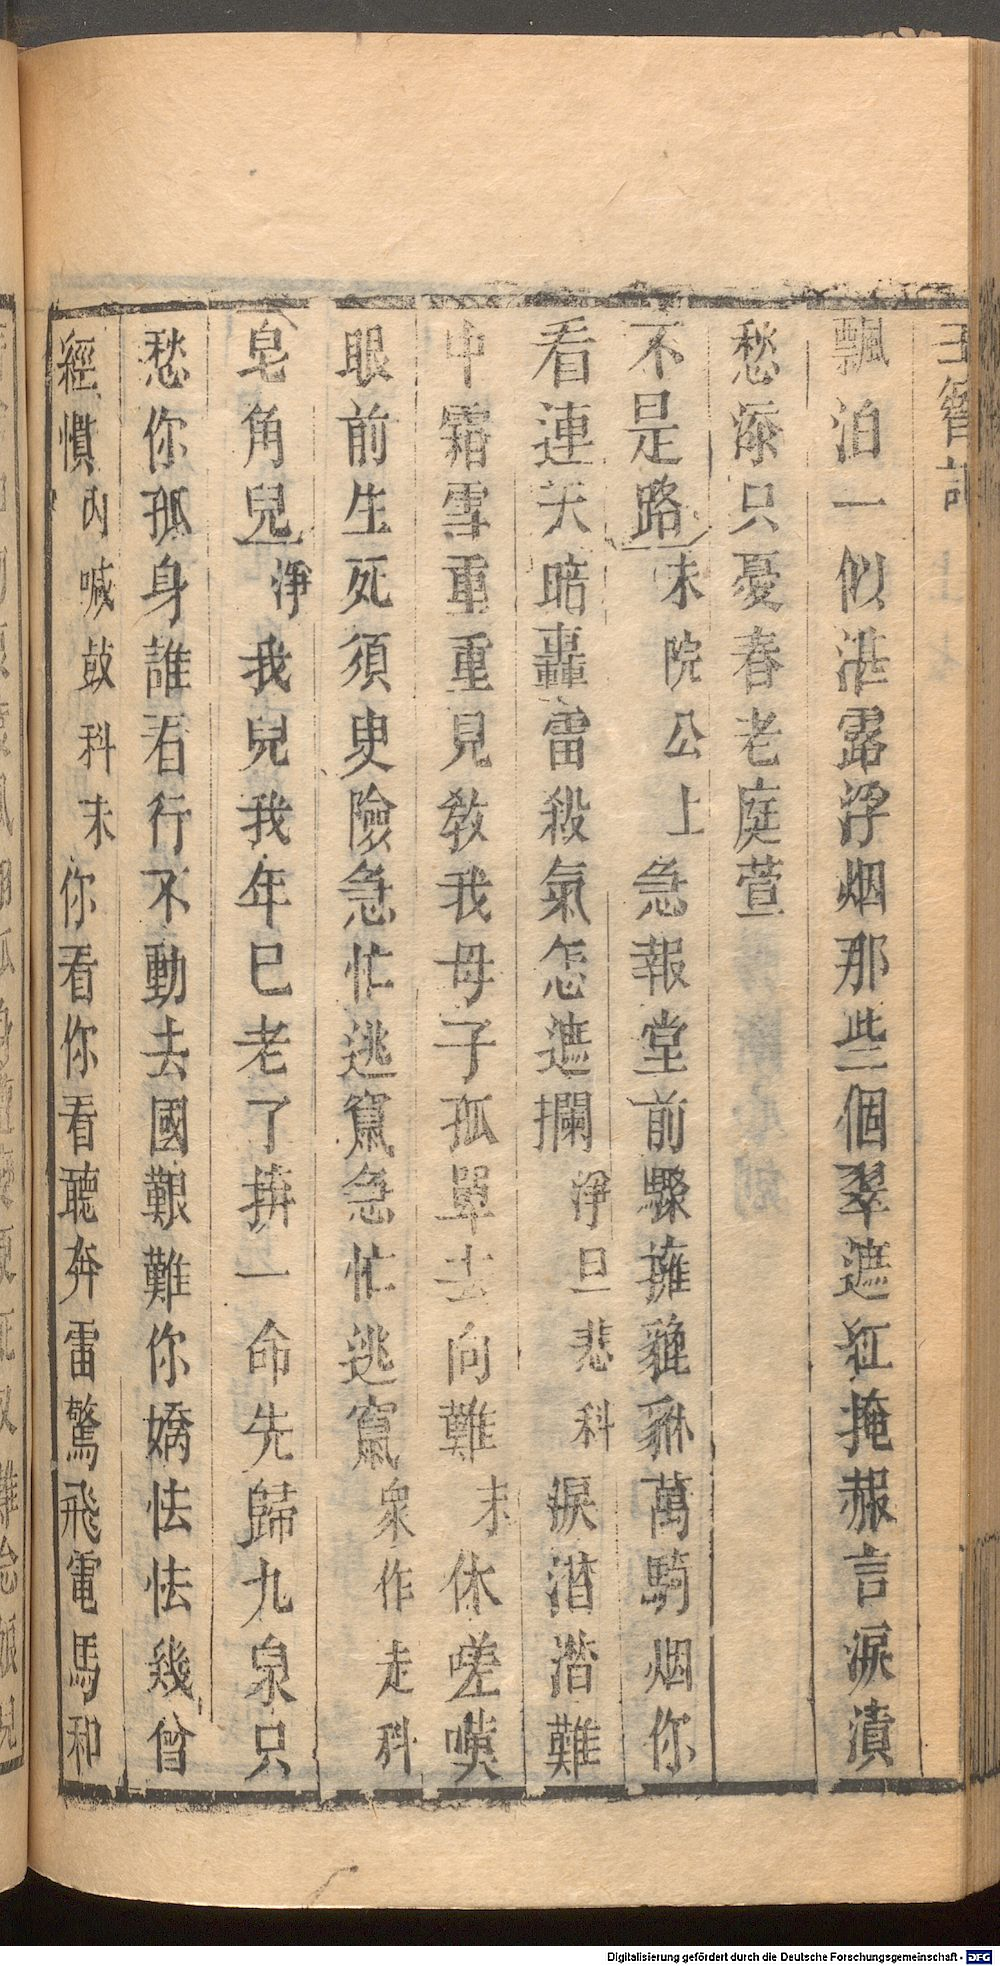 玉簪記
飄泊一似湛露浮烟那些個翠遮紅掩赧言淚漬
愁添只憂春老庭萱
不是路末院公上急報堂前驟擁貔貅萬騎烟你
看連天暗轟雷殺氣怎遮攔淨旦悲科淚潸潸難
中霜雪重重見教我母子孤單去向難末休嗟嘆
眼前生死須臾險急忙逃竄急忙逃竄衆作走科
皂角兒淨我兒我年巳老了拚一命先歸九泉只
愁你孤身誰看行不動去國艱難你嬌怯怯幾曾
經慣内喊鼓科末你看你看聽奔雷驚飛電馬和
Digitalisierung gefördert durch die Deutsche Forschungsgemeinschaft - DFG